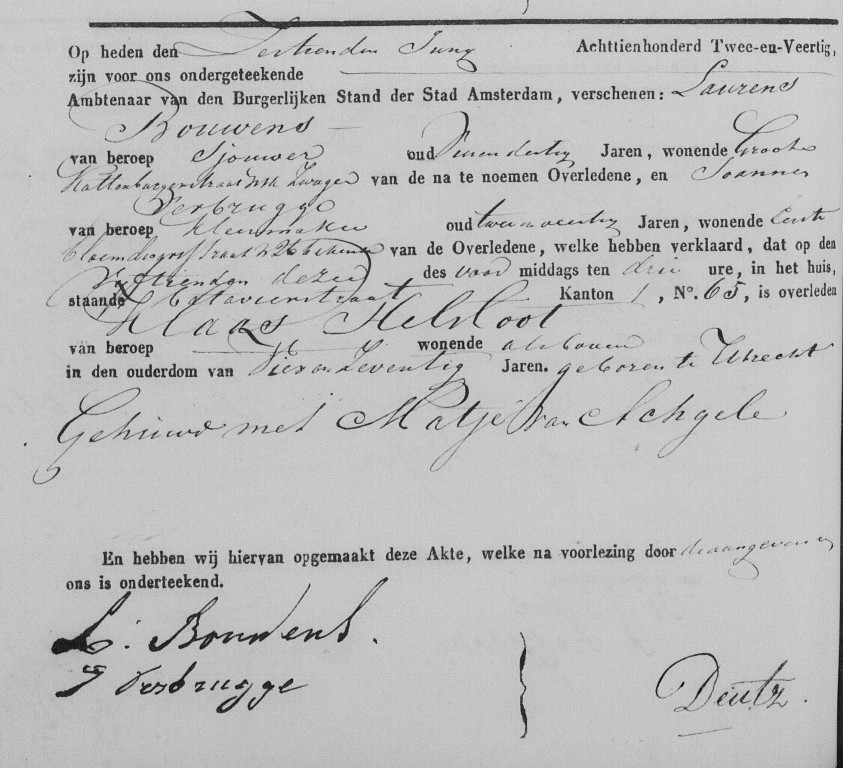 Op heden den Zestienden Juny Achttienhonderd Twee-en-Veertig,
zijn voor ons ondergeteekende
Ambtenaar van den Burgerlijken Stand der Stad Amsterdam, verschenen: Laurens
Bouwens
van beroep Sjouwer oud Jaren, wonende Groote
Kattenburgerstraat Zwager van de na te noemen Overledene, en Joannes
Verbrugge
van beroep Kleermaker oud twee en veertig Jaren, wonende Eerste
bloemdwarsstraat N 26 bekende van de Overledene, welke hebben verklaard, dat op den
Vijftienden dezer des voor middags ten drie ure, in het huis,
staande Batavierstraat Kanton 1, No. 65, is overleden
Klaas Helsloot
van beroep wonende als boven
in den ouderdom van Vier en Zeventig Jaren. geboren te Utrecht
Gehuwd met Matje van Achgele
En hebben wij hiervan opgemaakt deze Akte, welke na voorlezing door de aangevers en
ons is onderteekend.
L. Bouwens.
J Verbrugge
Deutz.